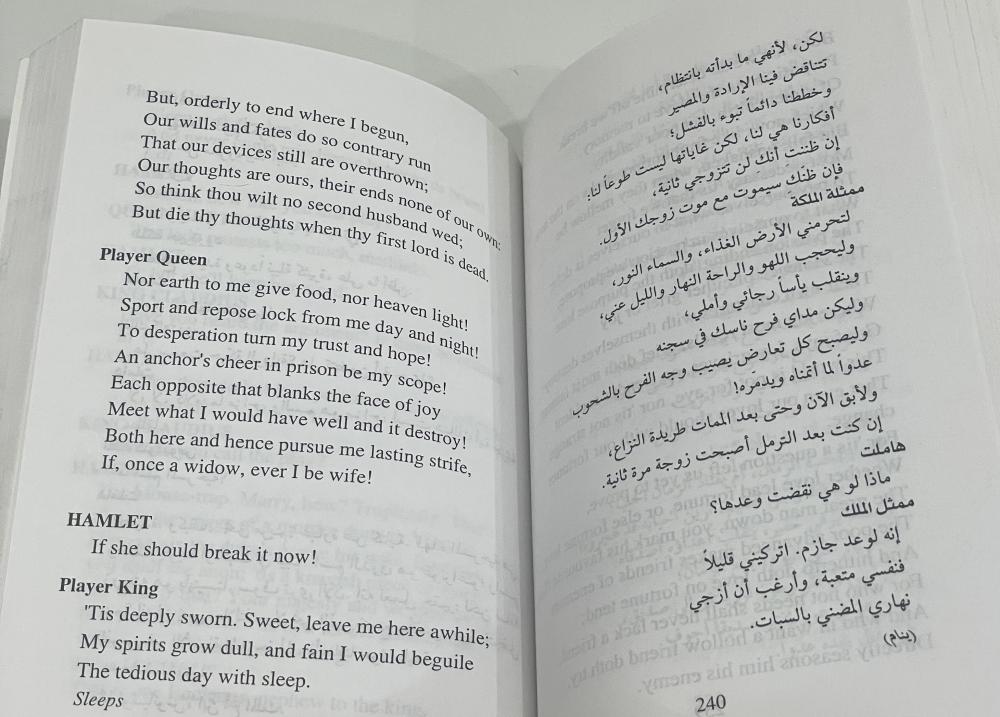 But, orderly to end where I begun,
Our wills and fates do so contrary run
That our devices still are overthrown;
Our thoughts are ours, their ends none of our own:
So think thou wilt no second husband wed;
But die thy thoughts when thy first lord is dead.
Player Queen
Nor earth to me give food, nor heaven light!
Sport and repose lock from me day and night!
To desperation turn my trust and hope!
An anchor's cheer in prison be my scope!
Each opposite that blanks the face of joy
Meet what I would have well and it destroy!
Both here and hence pursue me lasting strife,
If, once a widow, ever I be wife!
HAMLET
If she should break it now!
Player King
'Tis deeply sworn. Sweet, leave me here awhile;
My spirits grow dull, and fain I would beguile
The tedious day with sleep.
Sleeps
لكن، لأنهي ما بدأته بانتظام،
تتناقض فينا الإرادة والمصير
وخططنا دائماً تبوء بالفشل؛
أفكارنا هي لنا، لكن غاياتها ليست طوعاً لنا:
إن ظننت أنك لن تتزوجي ثانية،
فإن ظنك سيموت مع موت زوجك الأول.
ممثلة الملكة
لتحرمني الأرض الغذاء، والسماء النور،
وليحجب اللهو والراحة النهار والليل عني،
وينقلب يأساً رجائي وأملي،
وليكن مداي فرح ناسك في سجنه
وليصبح كل تعارض يصيب وجه الفرح بالشحوب
عدواً لما أتمناه ويدمّره!
ولأبق الآن وحتى بعد الممات طريدة النزاع،
إن كنت بعد الترمل أصبحت زوجة مرة ثانية.
هاملت
ماذا لو هي نقضت وعدها؟
ممثل الملك
إنه لوعد جازم. اتركيني قليلاً
فنفسي متعبة، وأرغب أن أزجي
نهاري المضني بالسبات.
(ينام)
240